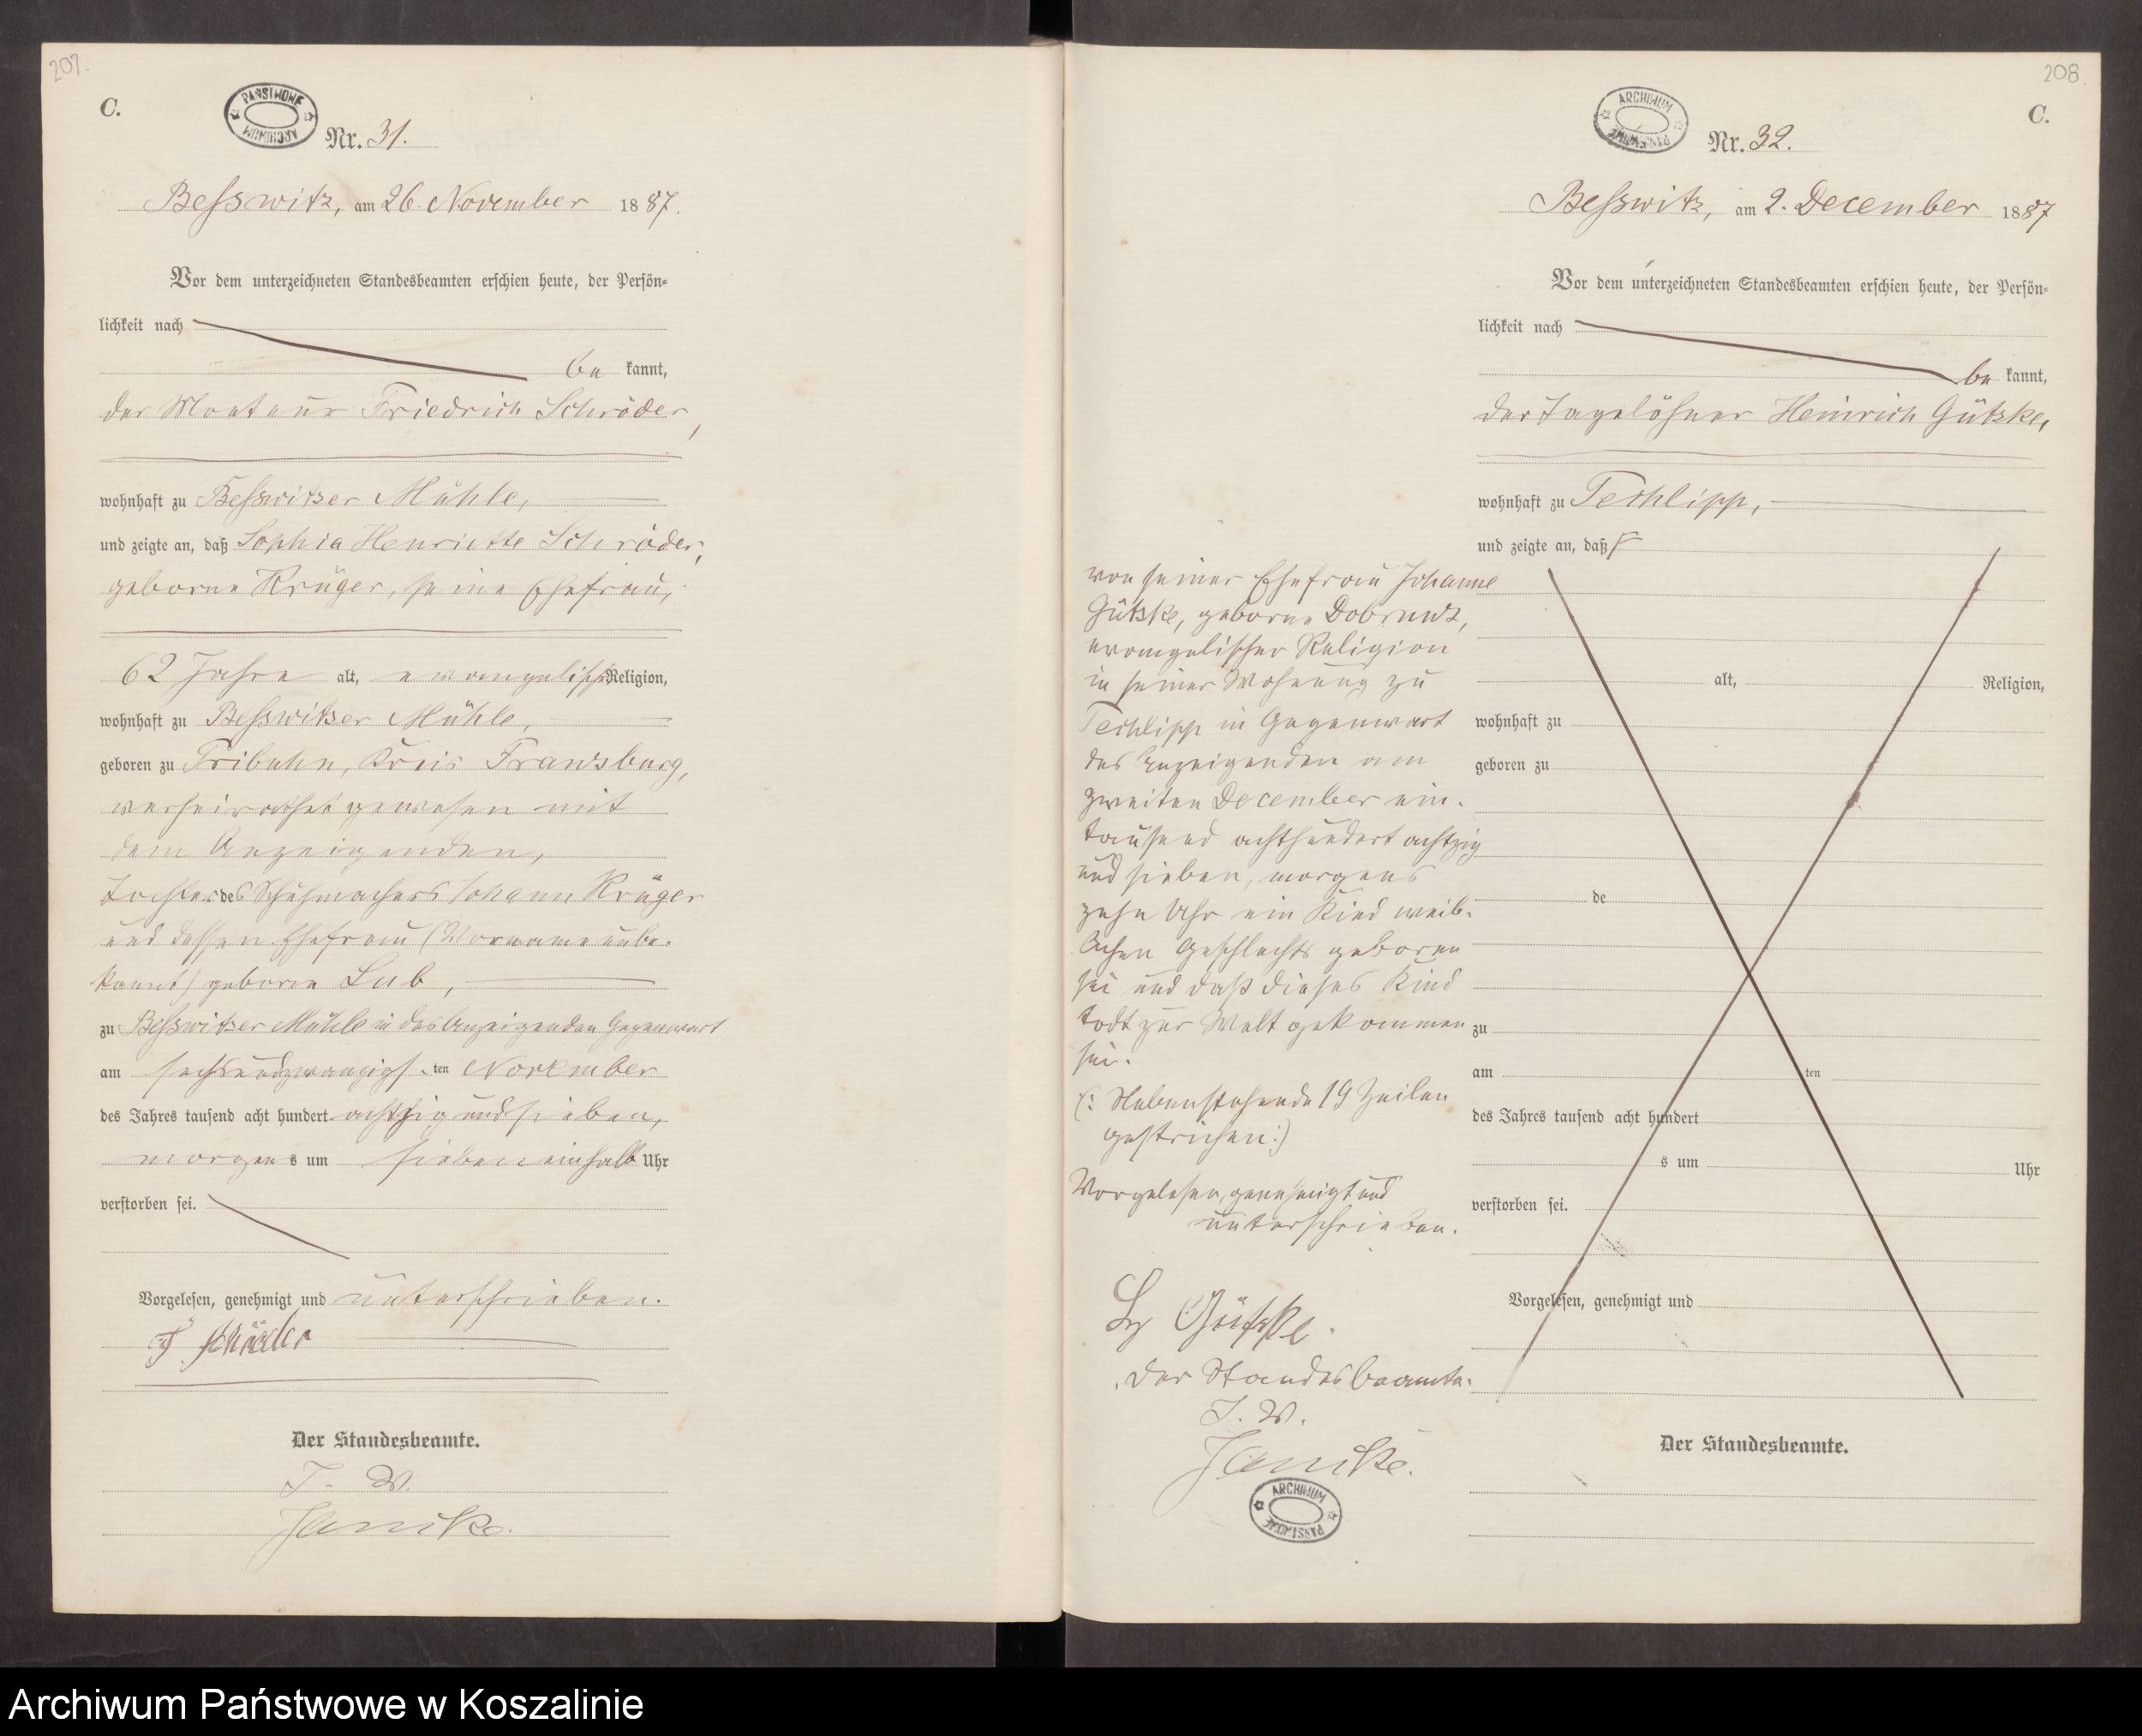 207.
C.
PAŃSTWOWE ARCHIWUM
Nr. 31.
Besswitz, am 26. November 1887.
Vor dem unterzeichneten Standesbeamten erschien heute, der Persön-
lichkeit nach
be kannt,
der Monteur Friedrich Schröder,
wohnhaft zu Besswitzer Mühle,
und zeigte an, daß Sophia Henriette Schröder,
geborne Krüger, seine Ehefrau,
62 Jahre alt, evangelischer Religion,
wohnhaft zu Besswitzer Mühle,
geboren zu Tribuhn, Kreis Franzburg,
verheirathet gewesen mit
dem Anzeigenden,
Tochter des Schuhmachers Johann Krüger
und dessen Ehefrau (Vorname unbe-
kannt) geborne Lub,
zu Besswitzer Mühle in des Anzeigenden Gegenwart
am sechsundzwanzigsten November
des Jahres tausend acht hundert achtzig und sieben,
morgens um sieben einhalb Uhr
verstorben sei.
Vorgelesen, genehmigt und unterschrieben.
F Schröder
Der Standesbeamte.
J. V.
Janike.
208.
C.
ARCHIWUM PAŃSTWOWE
Nr. 32.
Besswitz, am 2. December 1887
Vor dem unterzeichneten Standesbeamten erschien heute, der Persön-
lichkeit nach
be kannt,
der Tagelöhner Heinrich Gütske,
wohnhaft zu Techlipp,
und zeigte an, daß
von seiner Ehefrau Johanne
Gütske, geborne Dobrunz,
evangelischer Religion
in seiner Wohnung zu
Techlipp in Gegenwart
des Anzeigenden am
zweiten December ein-
tausend achthundert achtzig
und sieben, morgens
zehn Uhr ein Kind weib-
lichen Geschlechts geboren
sei und daß dieses Kind
todt zur Welt gekommen
sei.
(: Nebenstehende 19 Zeilen
gestrichen :)
Vorgelesen, genehmigt und
unterschrieben.
Gütske
Der Standesbeamte.
J. V.
Janike.
ARCHIWUM PAŃSTWOWE
alt, Religion,
wohnhaft zu
geboren zu
de
zu
am ten
des Jahres tausend acht hundert
s um Uhr
verstorben sei.
Vorgelesen, genehmigt und
Der Standesbeamte.
Archiwum Państwowe w Koszalinie